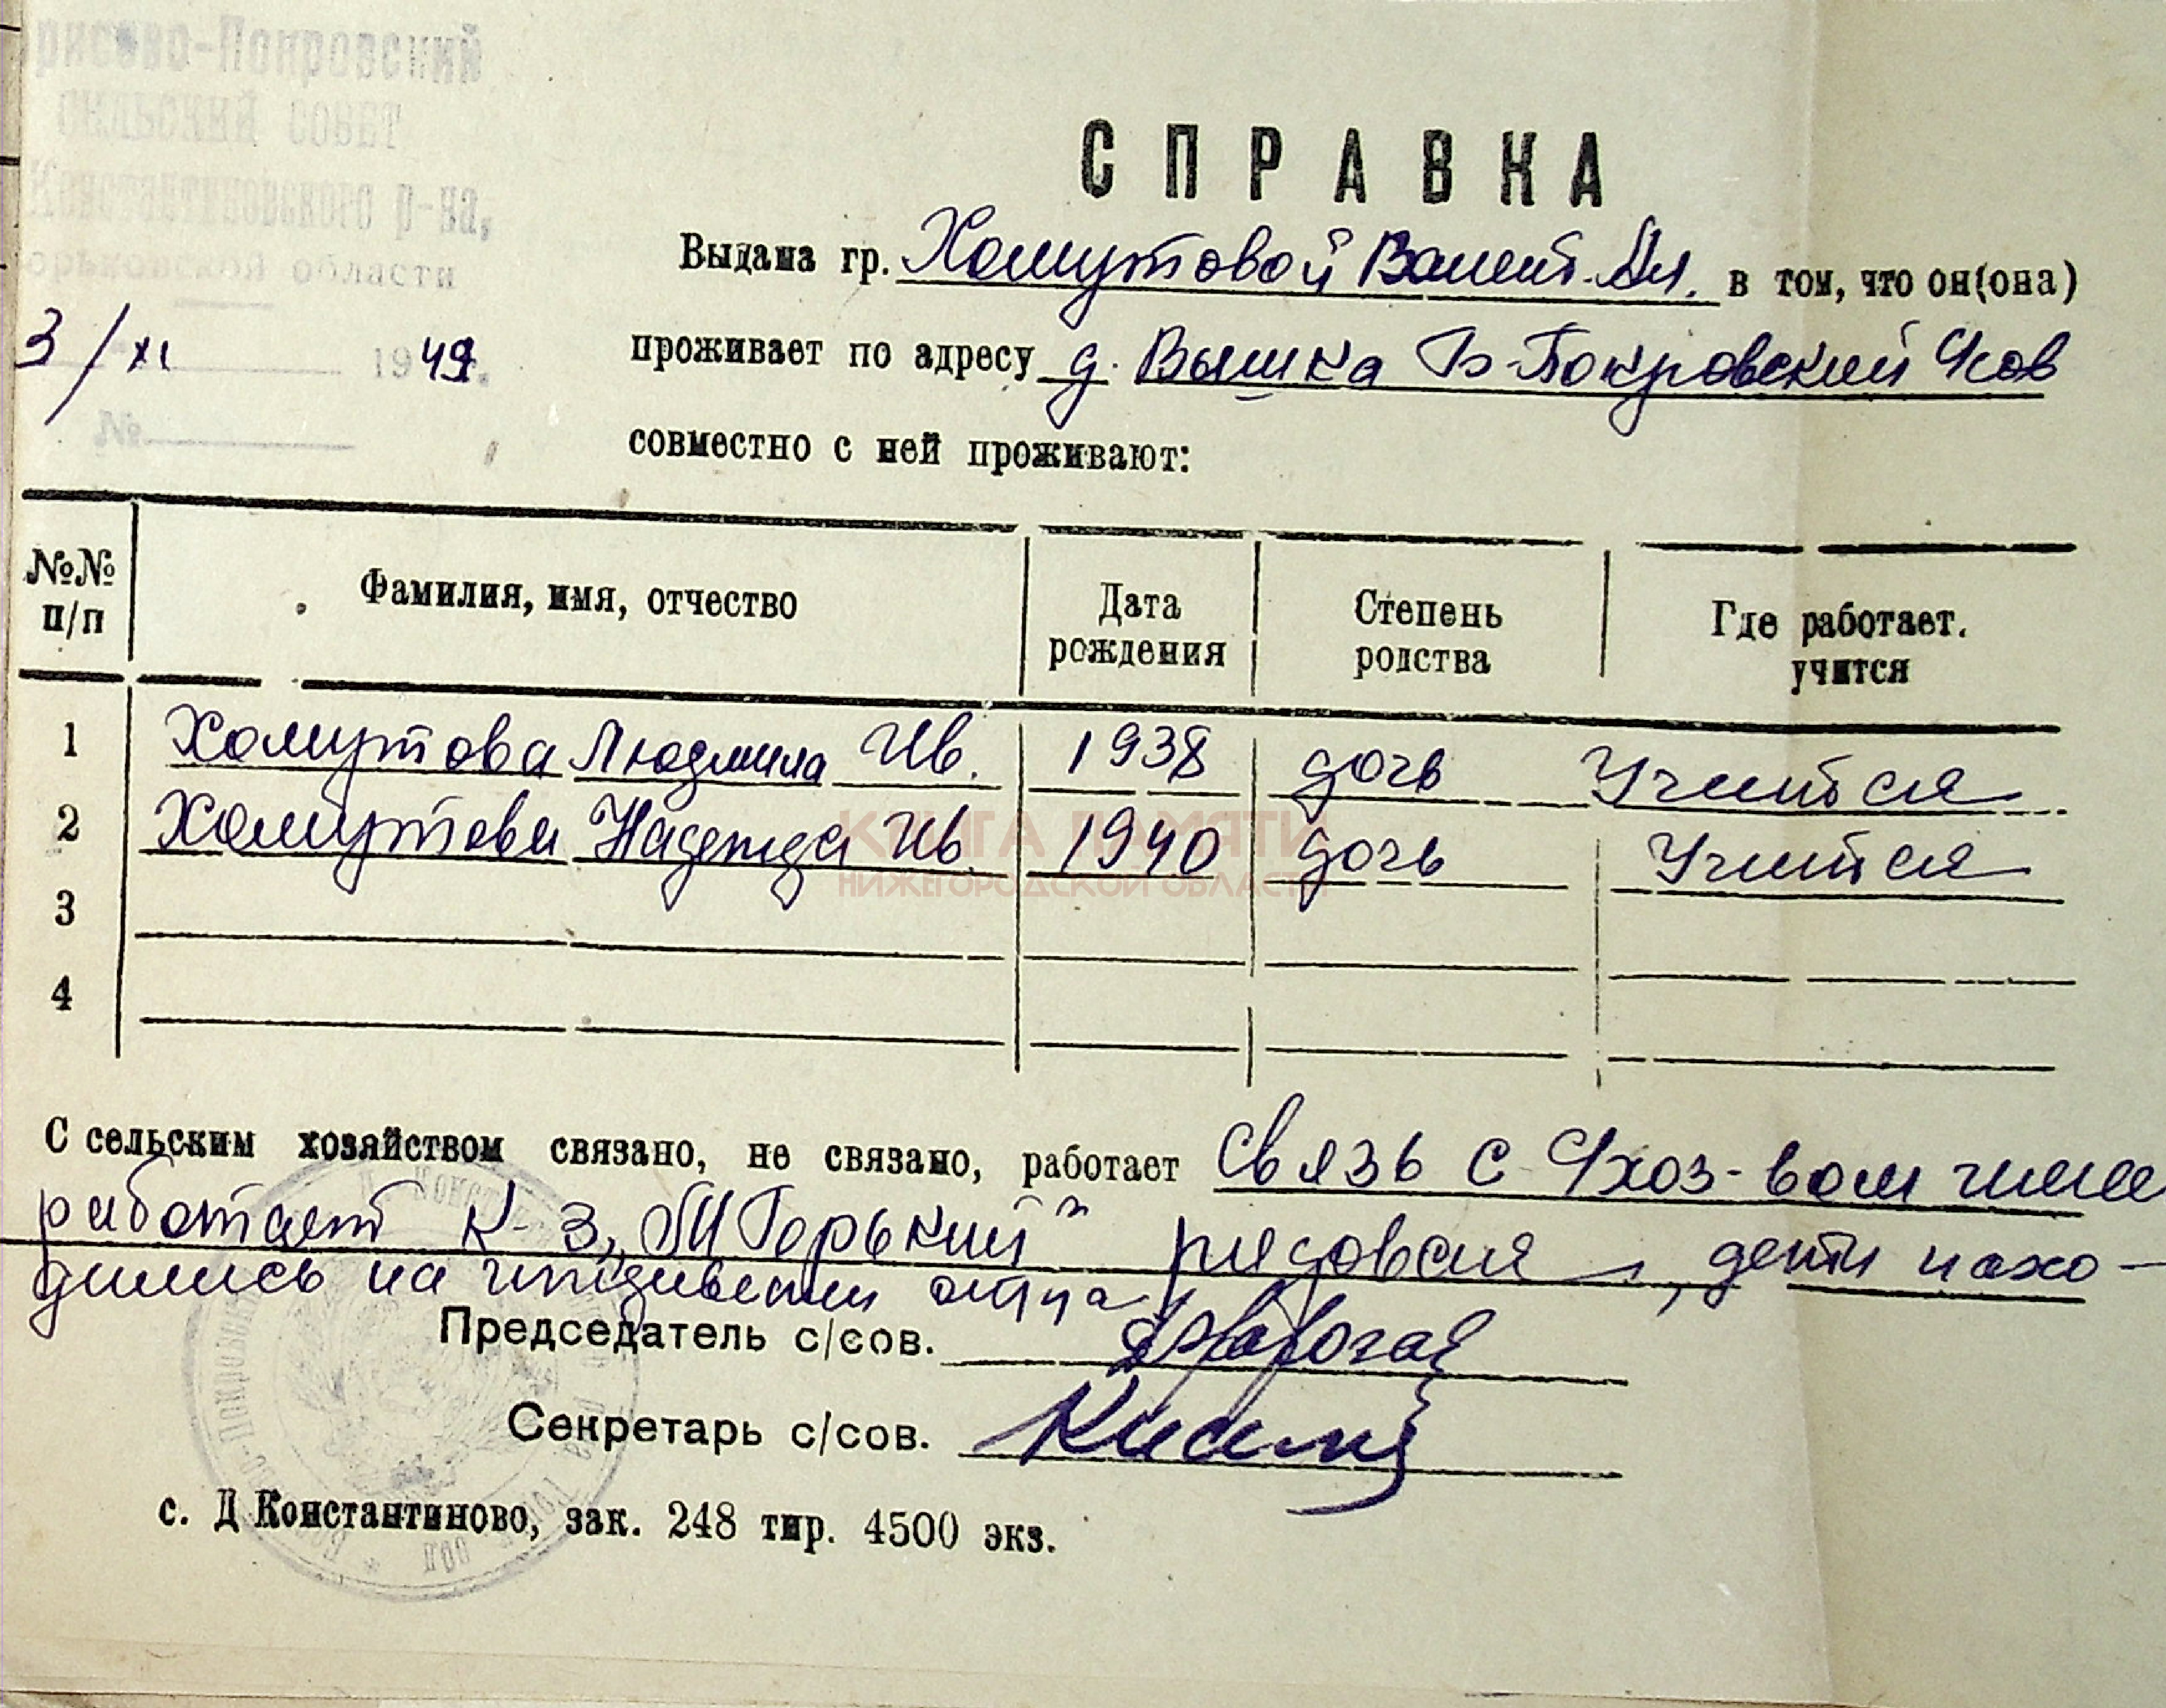 рисово-Покровский
СЕЛЬСКИЙ СОВЕТ
Константиновского р-на,
орьковской области
3/XI 1949г.
№
СПРАВКА
Выдана гр. Хомутовой Валент. Ал. в том, что он(она)
проживает по адресу д. Вышка Б-Покровский Чсов
совместно с ней проживают:
№№ п/п
Фамилия, имя, отчество
Дата рождения
Степень родства
Где работает. учится
1 Хомутова Людмила Ив. 1938 дочь Учится
2 Хомутова Надежда Ив. 1940 дочь Учится
3
4
КНИГА ПАМЯТИ
НИЖЕГОРОДСКОЙ ОБЛАСТИ
С сельским хозяйством связано, не связано, работает связь с хоз-вом
работает К-з „М Горький" рядовая, дети нахо-
дились на иждивении отца
Председатель с/сов.
Секретарь с/сов.
с. Д Константиново, зак. 248 тир. 4500 экз.